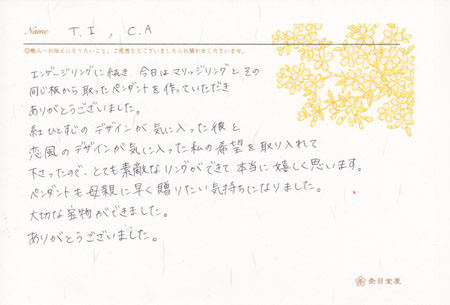 Name T. I , C. A
◎職人へお伝えになりたいこと、ご感想などございましたらお聞かせくださいませ。
エンゲージリングに続き 今日はマリッジリングと その
同じ板から取ったペンダントを作っていただき
ありがとうございました。
紅ひとすじの デザインが 気に入った彼と
恋風のデザインが気に入った私の希望を取り入れて
下さったので、とても素敵なリングができて本当に嬉しく思います。
ペンダントも母親に早く贈りたい気持ちになりました。
大切な宝物ができました。
ありがとうございました。
杢目金屋